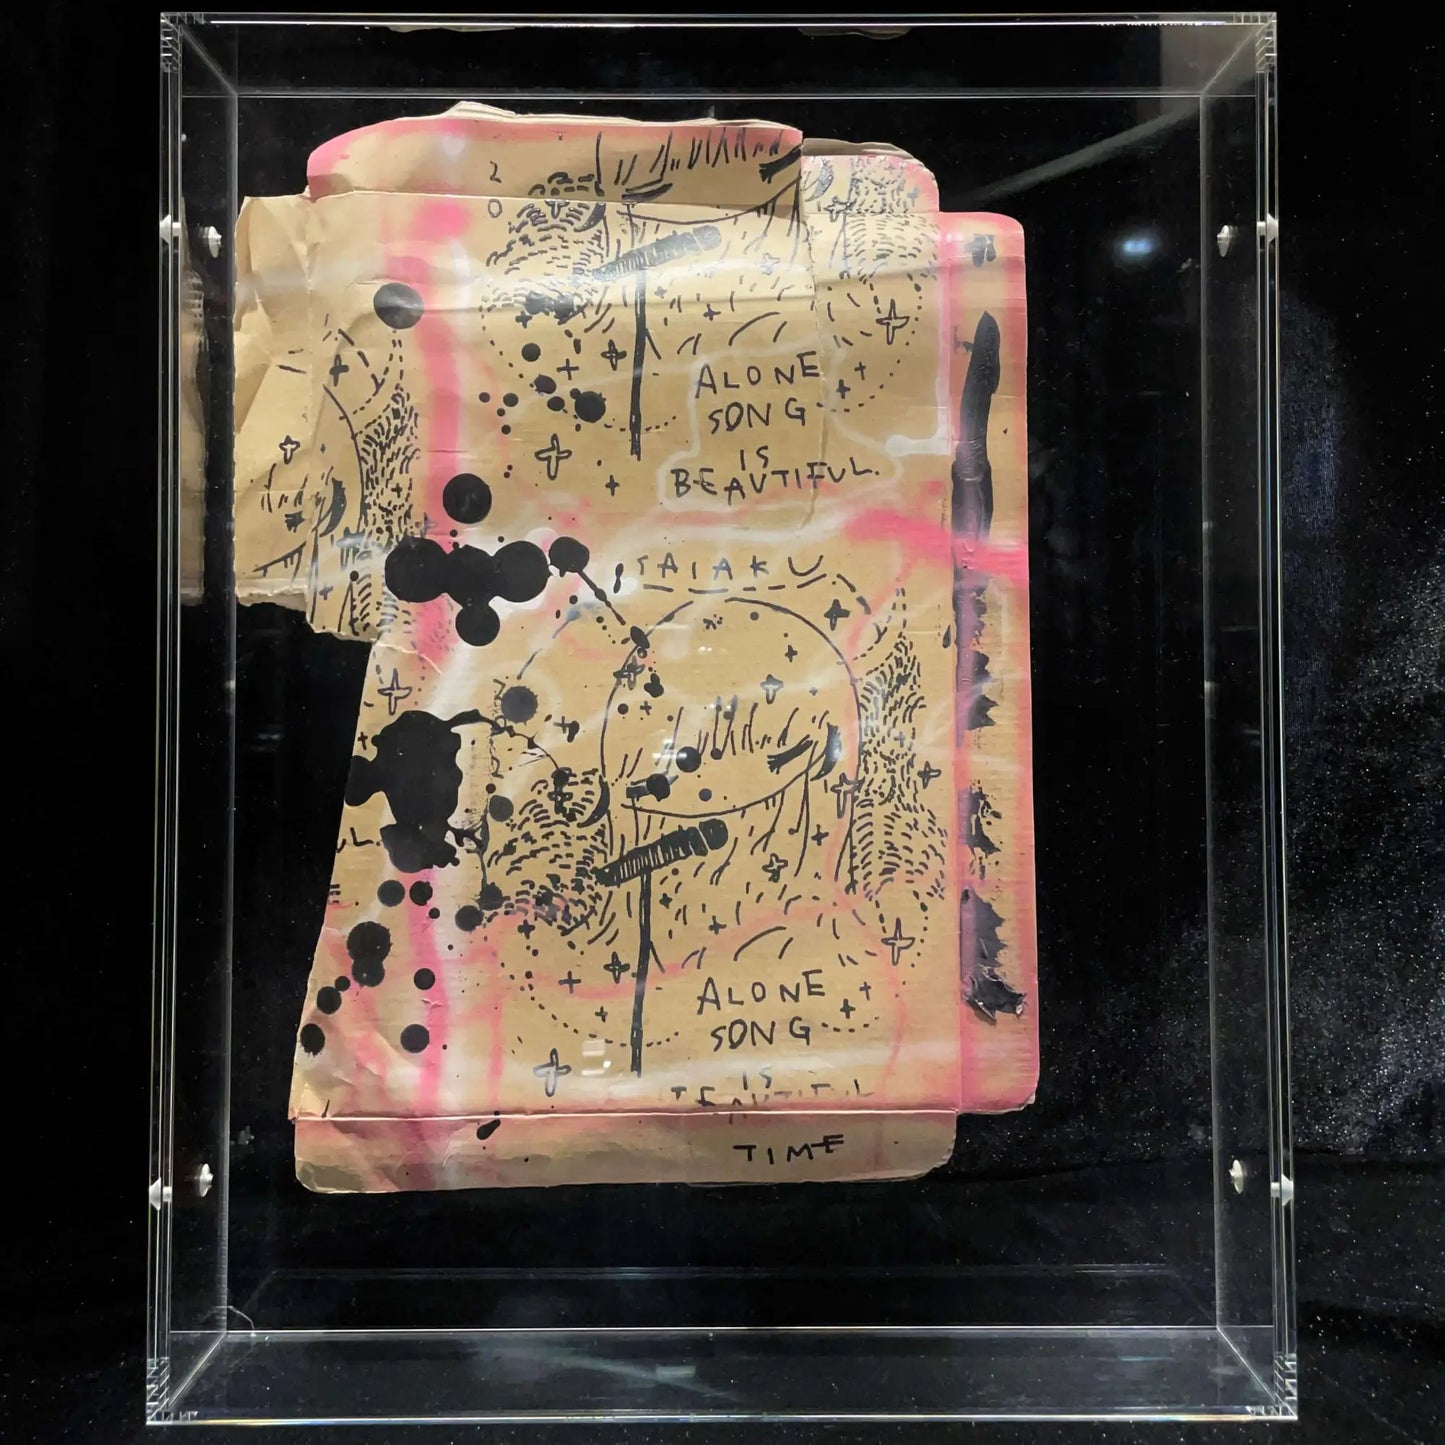 2
0
ALONE
SONG
IS
BEAUTIFUL.
SAIAKU
2
UL.
ALONE
SONG
IS
BEAUTIFUL
TIME